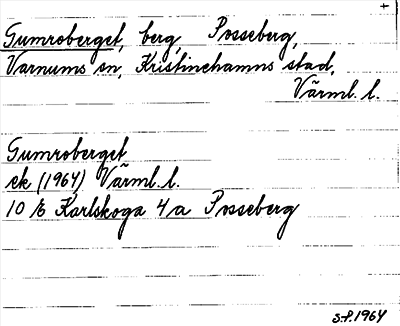 +
Gumroberget, berg, Posseberg,
Varnums sn, Kristinehamns stad,
Värml. l.
Gumroberget
ek (1964) Värml. l.
10 E Karlskoga 4a Posseberg
S.P. 1964